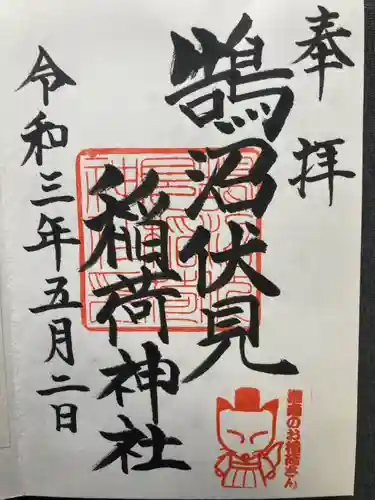 奉拝
鵠沼伏見
稲荷神社
令和三年五月二日
鵠沼のお稲荷さん